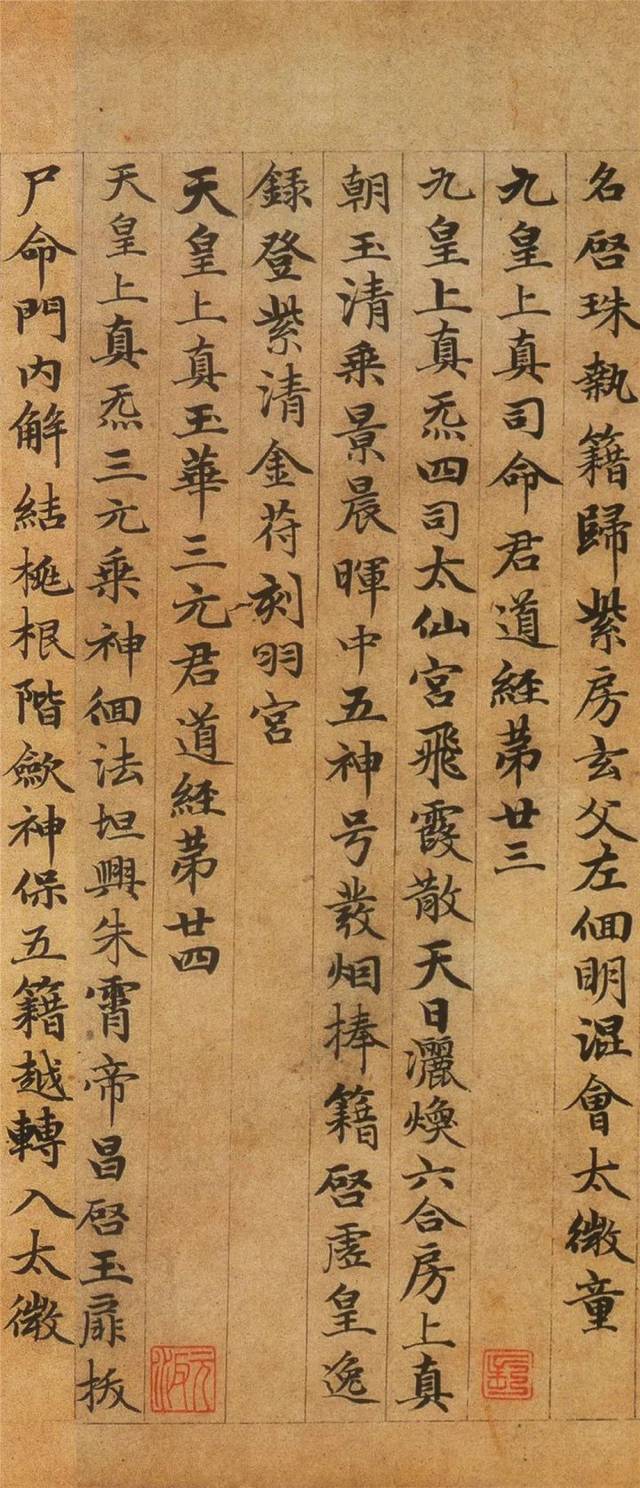 名啓珠執籍歸紫房玄父左佪明混會太微童
九皇上真司命君道經苐廿三
九皇上真炁四司太仙宮飛霞散天日灑煥六合房上真
朝玉清乘景晨暉中五神号叢烟捧籍啓虛皇逸
錄登紫清金苻刻羽宮
天皇上真玉華三元君道經苐廿四
天皇上真炁三元乘神佪法坦興朱霄帝昌啓玉扉板
尸命門內解結栬根階歛神保五籍越轉入太微